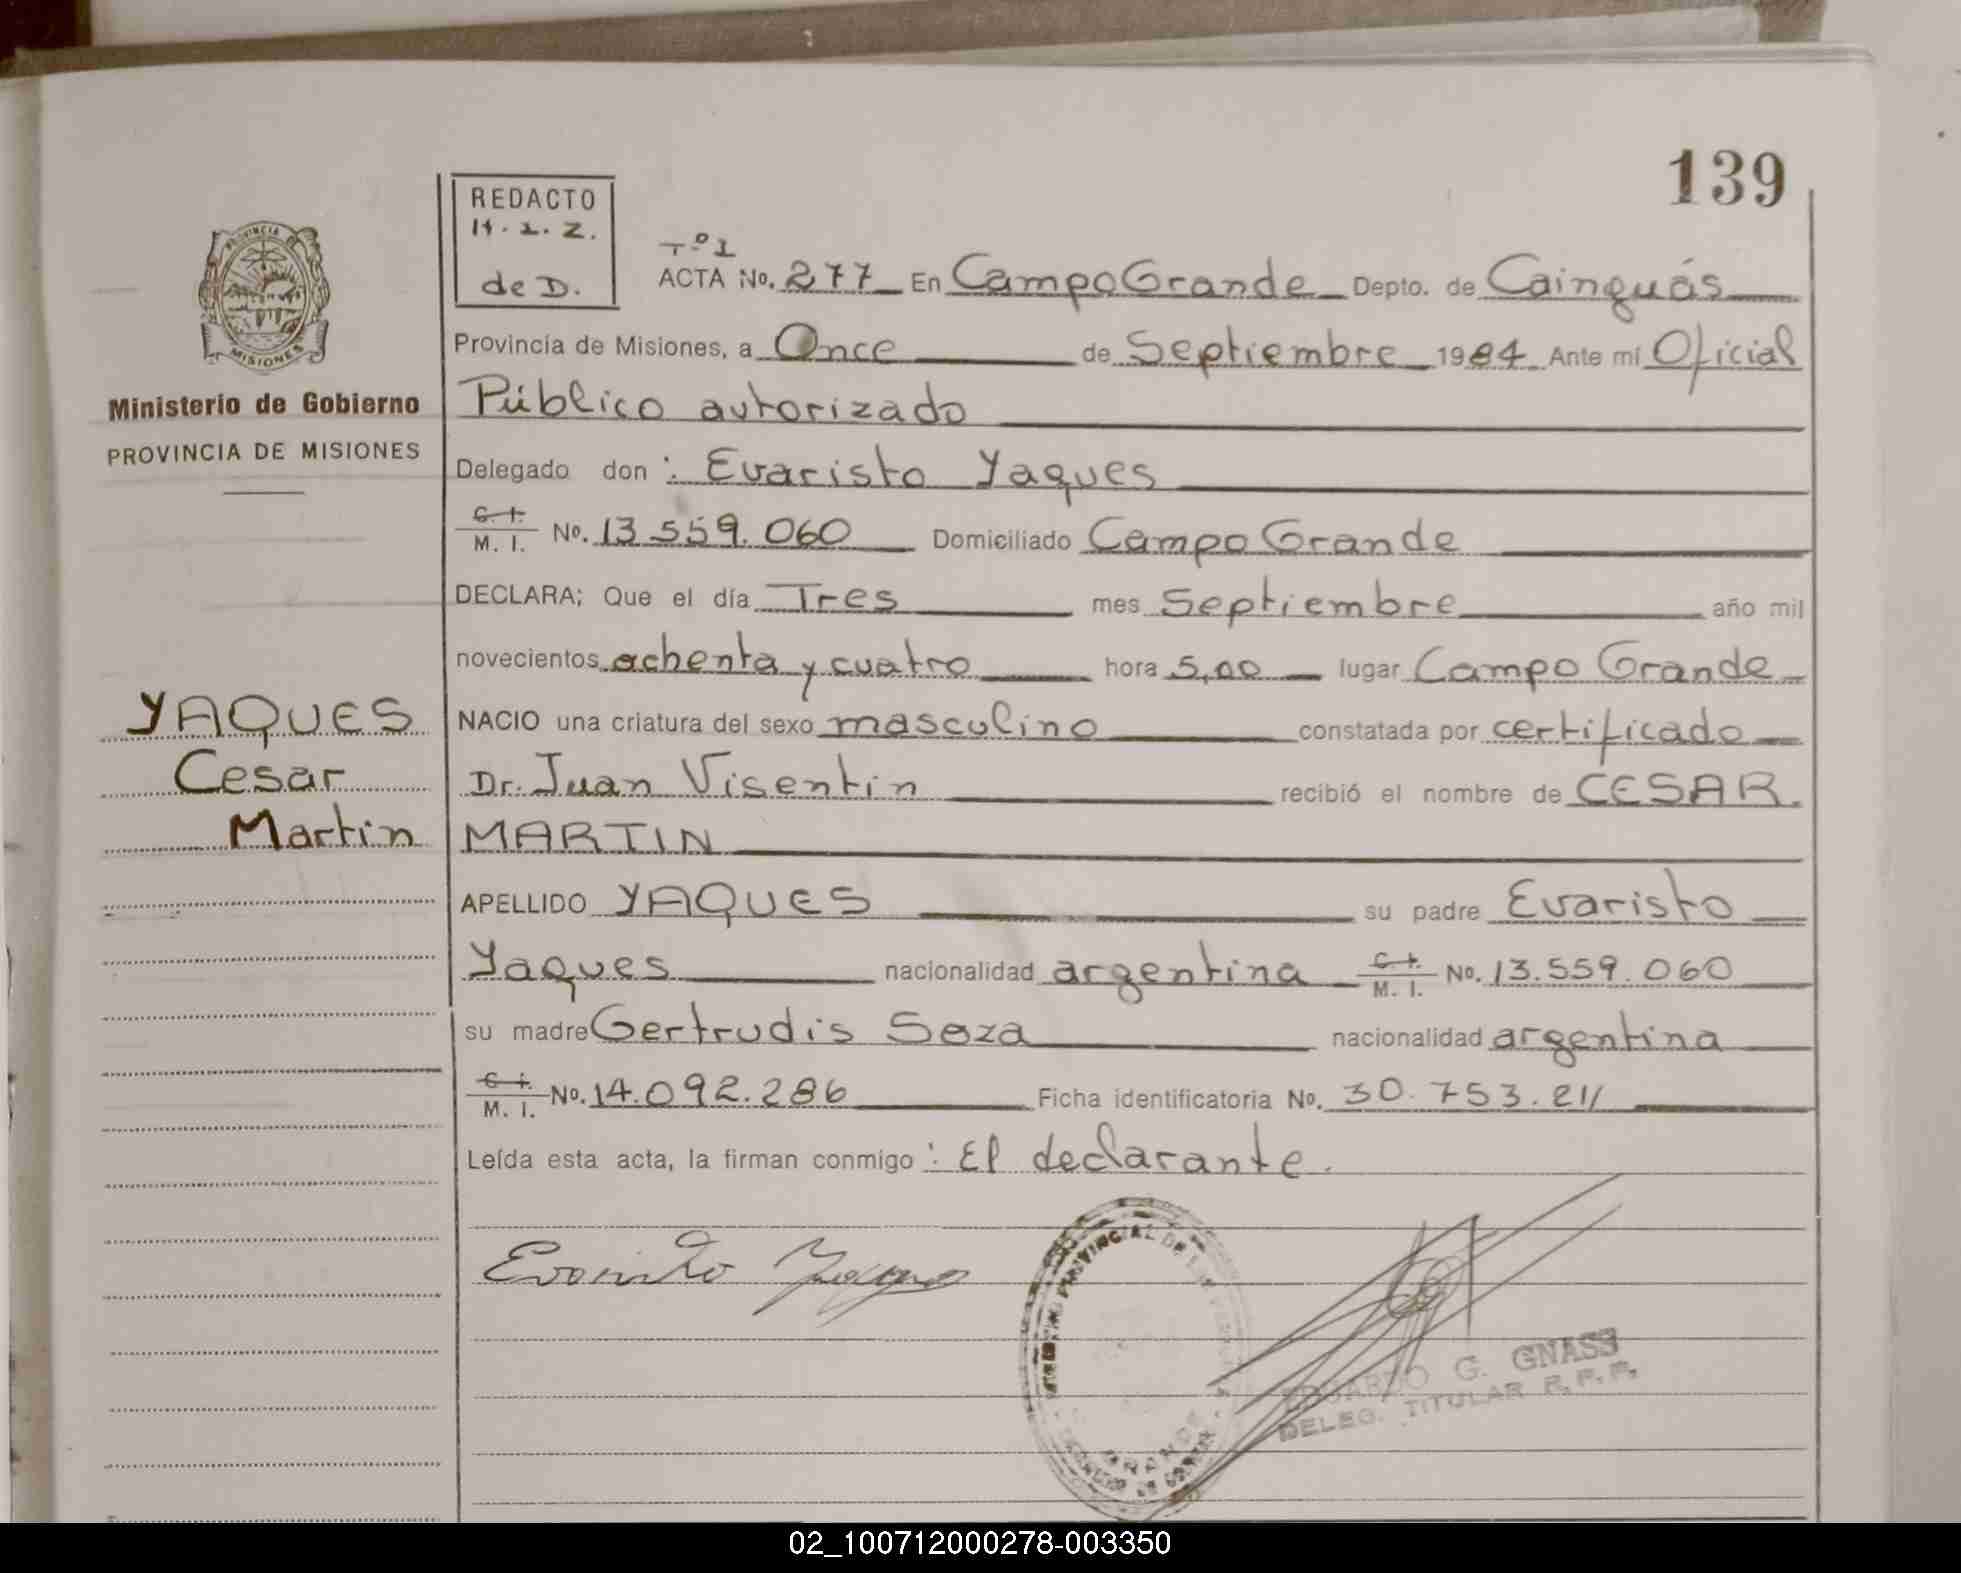 139
REDACTO
H. 1. Z.
de D.
PROVINCIA DE
MISIONES
Ministerio de Gobierno
PROVINCIA DE MISIONES
YAQUES
Cesar
Martin
Tº 1
ACTA No. 277 En Campo Grande Depto. de Cainguás
Provincia de Misiones, a Once de Septiembre 1984 Ante mí Oficial
Público autorizado
Delegado don : Evaristo Yaques
C. I. M. I. No. 13.559.060 Domiciliado Campo Grande
DECLARA; Que el día Tres mes Septiembre año mil
novecientos ochenta y cuatro hora 5,00 lugar Campo Grande
NACIO una criatura del sexo masculino constatada por certificado
Dr. Juan Visentin recibió el nombre de CESAR
MARTIN
APELLIDO YAQUES su padre Evaristo
Yaques nacionalidad argentina C. I. M. I. No. 13.559.060
su madre Gertrudis Soza nacionalidad argentina
C. I. M. I. No. 14.092.286 Ficha identificatoria No. 30.753.211
Leída esta acta, la firman conmigo : El declarante.
Evaristo Yaques
PROVINCIAL DE
GRANDE
EDUARDO G. GNASS
DELEG. TITULAR R.P.P.
02_100712000278-003350